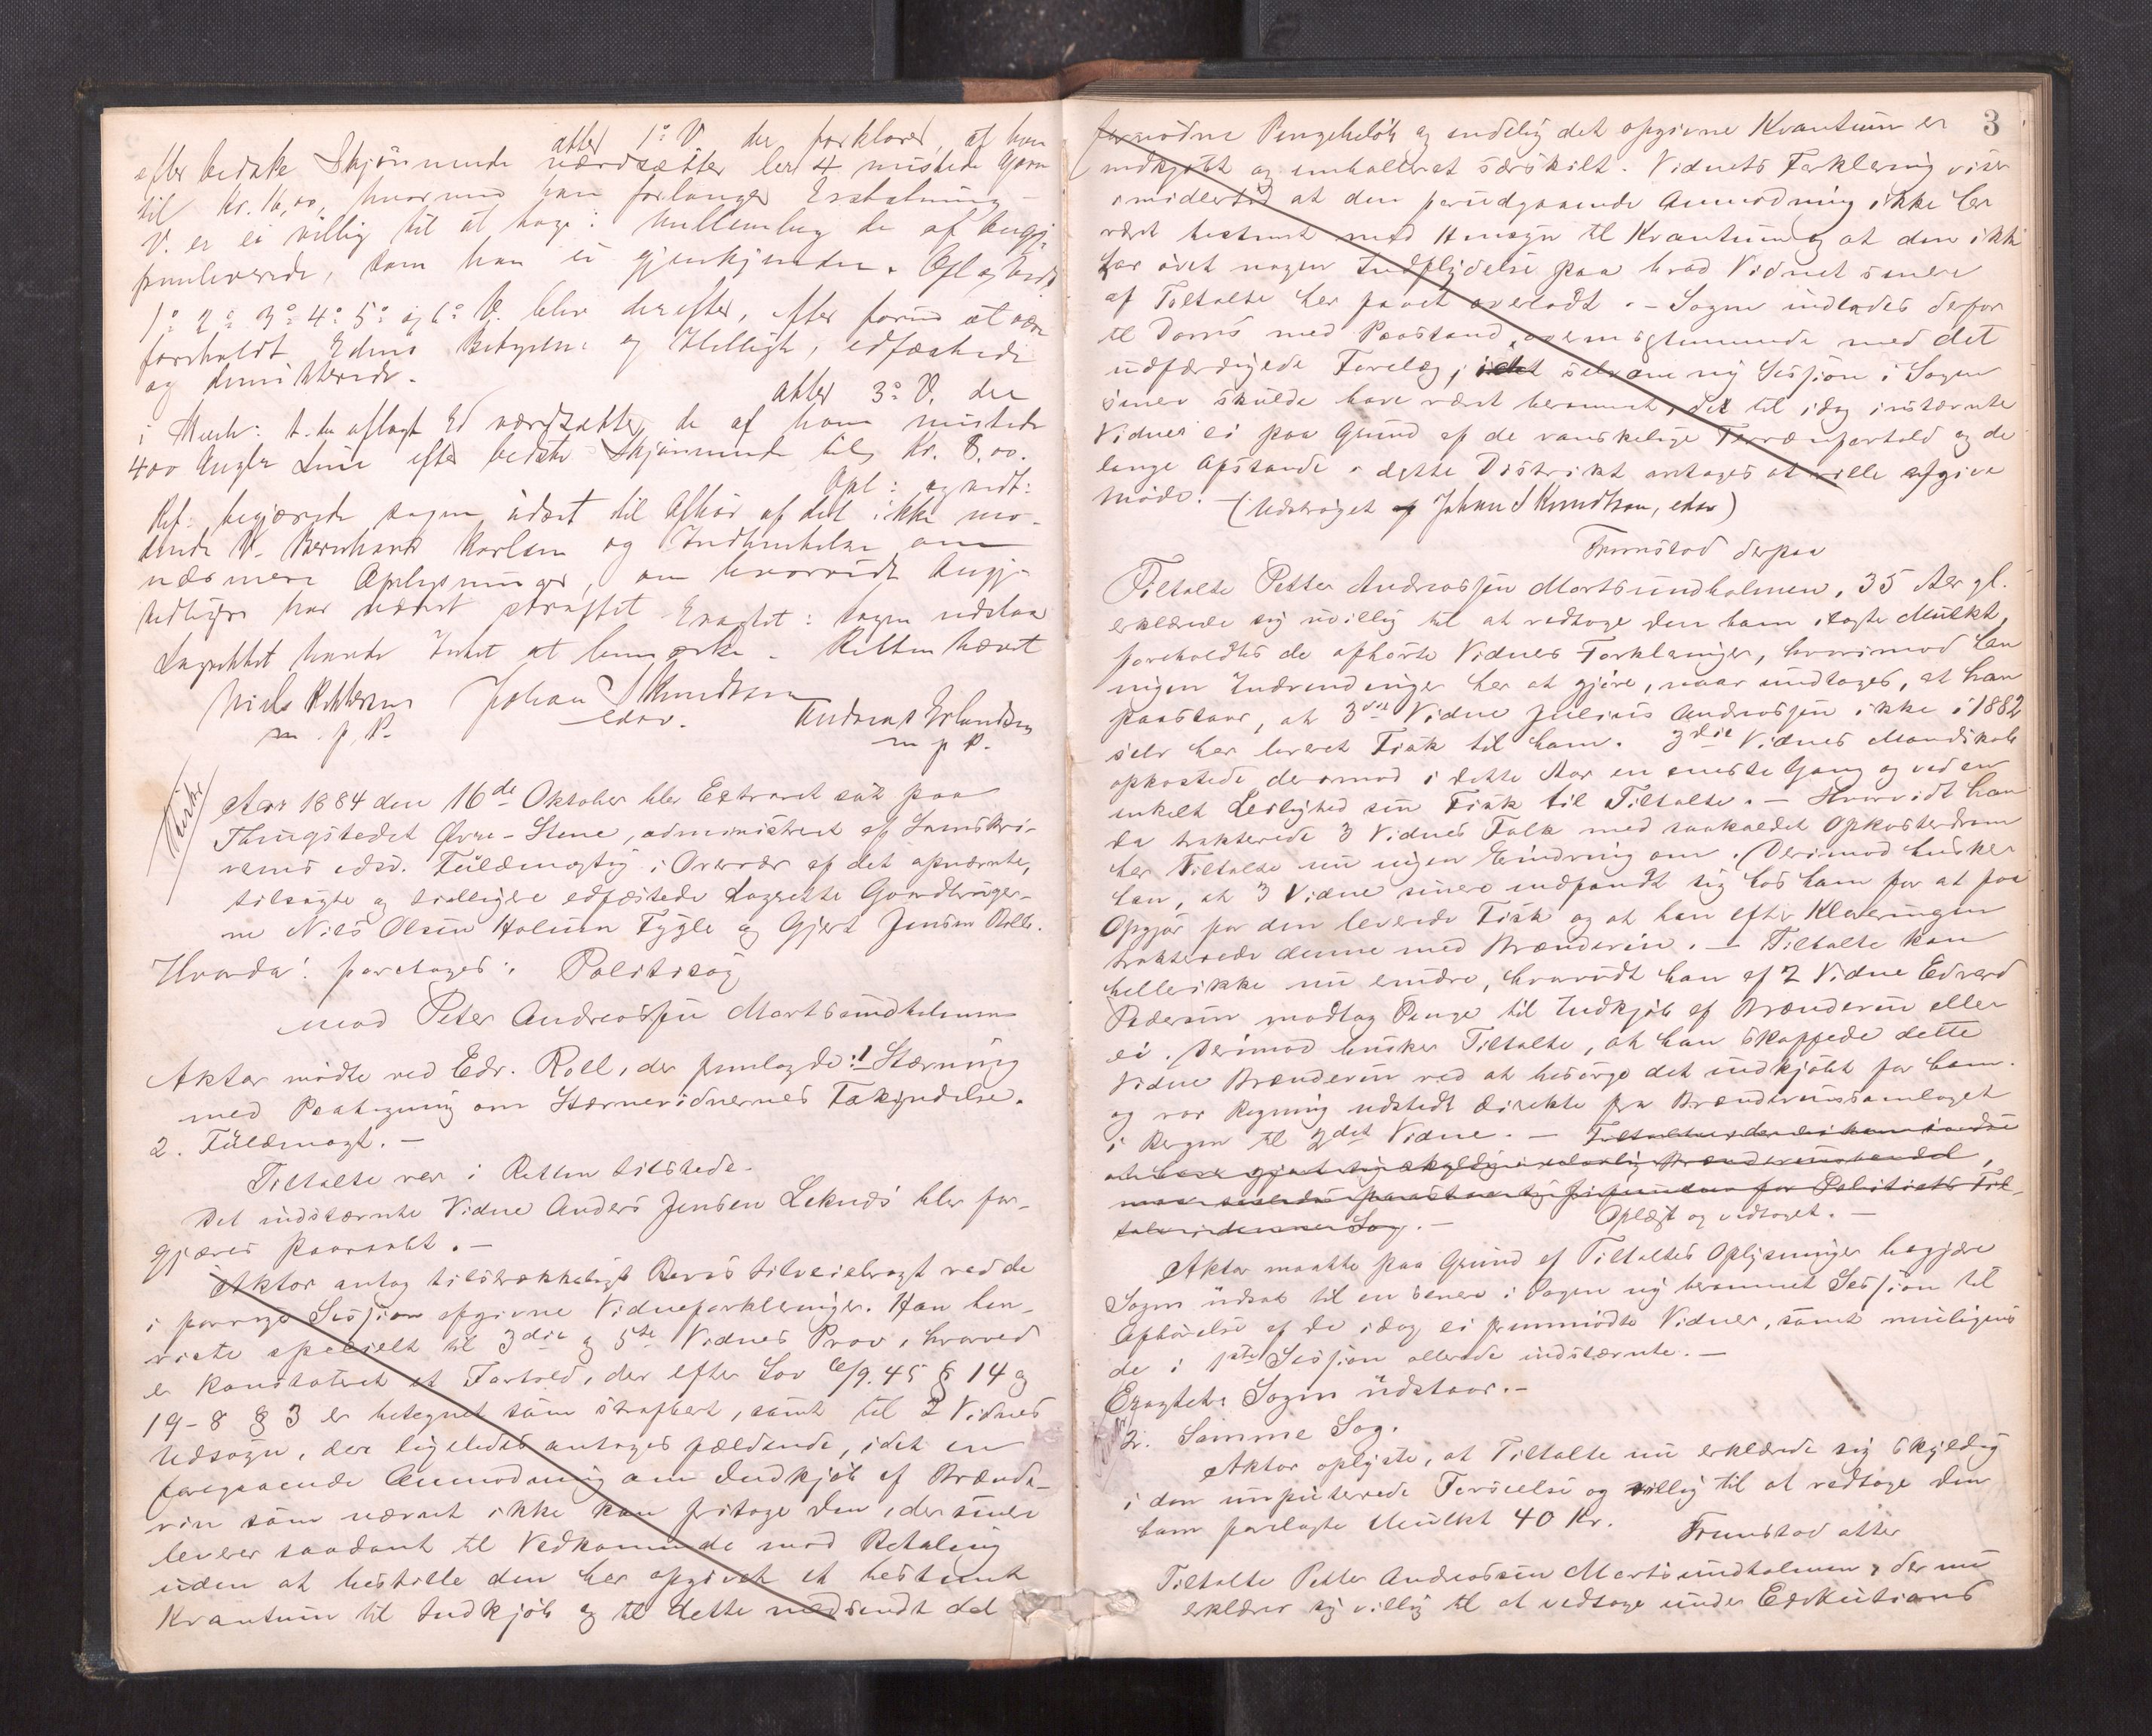 atter 1ᵒ V. der forklared, af han
efter bedste Skjønnende værdsætter les 4 mistede Garn
til Kr. 16,00, hvormed han forlanger Erstatning –
V. er ei villig til at tage: Mellemlæg de af Angj:
fremleverede, som han ei gjenkjender. Opl og vedt
1ᵒ 2ᵒ 3ᵒ 4ᵒ 5ᵒ og 6ᵒ V. blev derefter, efter forud at være
foreholdt Edens Betydning og Hellighed, edfæstede
og dimitterede.
atter 3ᵒ V. der
i Medh: t. den aflagte Ed værdsætter de af ham mistede
400 Angler Line efter bedste Skjønnende til Kr. 8,00.
Opl: og vedt:
Ref: begjærede sagen udsat til Afhør af det ikke mø-
dende V. Bernhard Karlsen og Indhentelse om
nærmere Oplysninger, om hvorvidt Angj-
tidligere har været straffet Eragtet: Sagen udstaar
Lagrettet havde Intet at bemærke. Retten hævet
Johan S Knudtzon
edsv.
Andreas Erlandsen
m. p. P.
m p P.
Aar 1884 den 16de Oktober blev Extraret sat paa
Thingstedet Øvre-Stene, administreret af Sorenskri-
verens edsv. Fuldmægtig i Overvær af det opnævnte,
tilsagte og tidligere edfæstede Lagrette Gaardbruger-
ne Nils Olsen Holmen Fygle og Gjert Jensen Bolle.
Hvorda! foretoges: Politisag
mod Peter Andreassen Mortsundholmen
Aktor mødte ved Edv. Roll, der fremlagde: 1 Stævning
med Paategning om Stævnevidnernes Forkyndelse.
2. Fuldmagt. –
Tiltalte var i Retten tilstede.
Det indstævnte Vidne Anders Jensen Leknes blev for-
gjæves paaraabt. –
Aktor antog tilstrækkeligt Bevis tilveiebragt ved de
i forrige Session afgivne Vidneforklaringer. Han hen-
viste specielt til 3die og 5te Vidnes Prov, hvorved
er konstateret et Forhold, der efter Lov 6/9. 45 § 14 og
19-8 § 3 er betegnet som strafbart, samt til 2 Vidnes
Udsagn, der ligeledes antoges fældende, idet en
foregaaende Anmodning om Indkjøb af Brænde-
vin som nævnt ikke kan fritage den, der siden
leverer saadant til Vedkommende mod Betaling
uden at bestille den har opgivet et bestemt
Kvantum til Indkjøb og til dette medsendt det
3
fornødne Pengebeløb og endelig det opgivne Kvantum er
indkjøbt og emballeret særskilt. Vidnets Forklaring viser
imidlertid at den forudgaaende Anmodning ikke har
været bestemt med Hensyn til Kvantum og at den ikke
har øvet nogen Indflydelse paa hvad Vidnet senere
af Tiltalte har faaet overladt. – Sagen indlades derfor
til Doms med Paastand overensstemmende med det
udfærdigede Forelæg, idet selv om ny Session i Sagen
senere skulde have været berammet, det til idag instævnte
Vidne ei paa Grund af de vanskelige Terrænforhold og de
lange Afstande i dette Distrikt antages at ville afgive
Møde. – (Udstrøget af Johan S Knudtzon, edsv)
Fremstod derpaa
Tiltalte Petter Andreassen Mortsundholmen, 35 Aar gl.
erklærede sig uvillig til at vedtage den ham ilagte Mulkt,
foreholdtes de afhørte Vidners Forklaringer, hvorimod han
ingen Indvendinger har at gjøre, naar undtages, at han
paastaar, at 3die Vidne Julius Andreassen ikke i 1882
selv har leveret Fisk til ham. 3die Vidnes Mandskab
opkastede derimod i dette Aar en eneste Gang og ved en
enkelt Leilighed sin Fisk til Tiltalte. – Hvorvidt han
da trakterede 3 Vidnes Folk med saakaldet Opkasterdram
har Tiltalte nu ingen Erindring om. Derimod husker
han, at 3 Vidne senere indfandt sig hos ham for at faa
Opgjør for den leverede Fisk og at han efter Klareringen
trakterede denne med Brændevin. – Tiltalte kan
heller ikke nu erindre, hvorvidt han af 2 Vidne Edvard
Pedersen modtog Penge til Indkjøb af Brændevin eller
ei. Derimod husker Tiltalte, at han skaffede dette
Vidne Brændevin ved at besørge det indkjøbt for ham.
og var Regning udstedt direkte fra Brændevinssamlaget
i Bergen til 2det Vidne. –
Oplæst og vedtaget. –
Aktor maatte paa Grund af Tiltaltes Oplysninger begjære
Sagen udsat til en senere i Sagen ny berammet Session til
Afhørelse af de idag ei fremmødte Vidner, samt muligens
de i 1ste Session allerede indstævnte. –
Eragtet: Sagen udstaar. –
2. Samme Sag.
Aktor oplyste, at Tiltalte nu erklærede sig skyldig
i den imputerede Forseelse og villig til at vedtage den
ham forelagte Mulkt 40 Kr. Fremstod atter
Tiltalte Petter Andreassen Mortsundholmen, der nu
erklærer sig villig til at vedtage under Exekutions